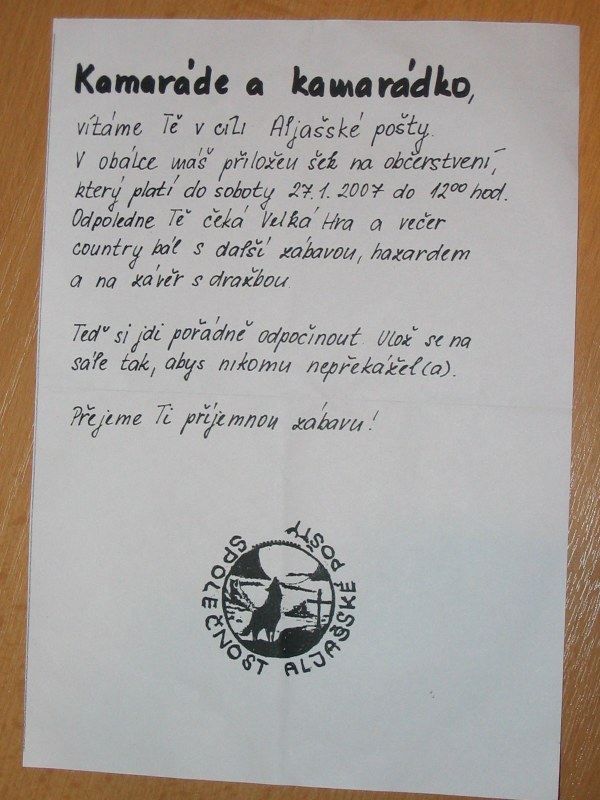 Kamaráde a kamarádko,
vítáme Tě v cíli Aljašské pošty.
V obálce máš přiložen šek na občerstvení,
který platí do soboty 27.1.2007 do 12⁰⁰ hod.
Odpoledne Tě čeká Velká Hra a večer
country bál s další zábavou, hazardem
a na závěr s dražbou.
Teď si jdi pořádně odpočinout. Ulož se na
sále tak, abys nikomu nepřekážel(a).
Přejeme Ti příjemnou zábavu!
SPOLEČNOST ALJAŠSKÉ POŠTY